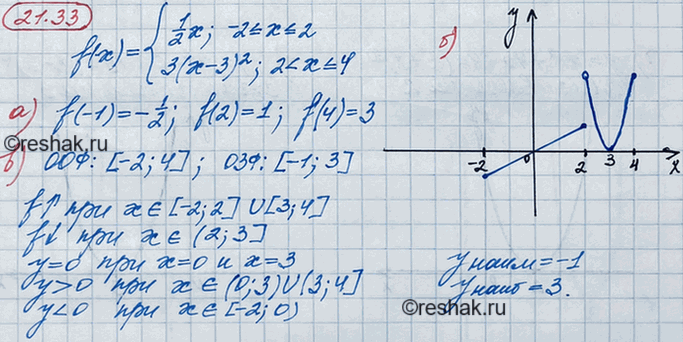 21.33
f(x)= { 1/2x; -2≤x≤2
3(x-3)²; 2<x≤4
а) f(-1)=-1/2; f(2)=1; f(4)=3
б)
y
-2 0 2 3 4 x
©reshak.ru
в) ООФ: [-2; 4]; ОЗФ: [-1; 3]
f↑ при x∈[-2;2]∪[3;4]
f↓ при x∈(2;3]
y=0 при x=0 и x=3
y>0 при x∈(0;3)∪(3;4]
y<0 при x∈[-2;0)
yнаим=-1
yнаиб=3.
©reshak.ru